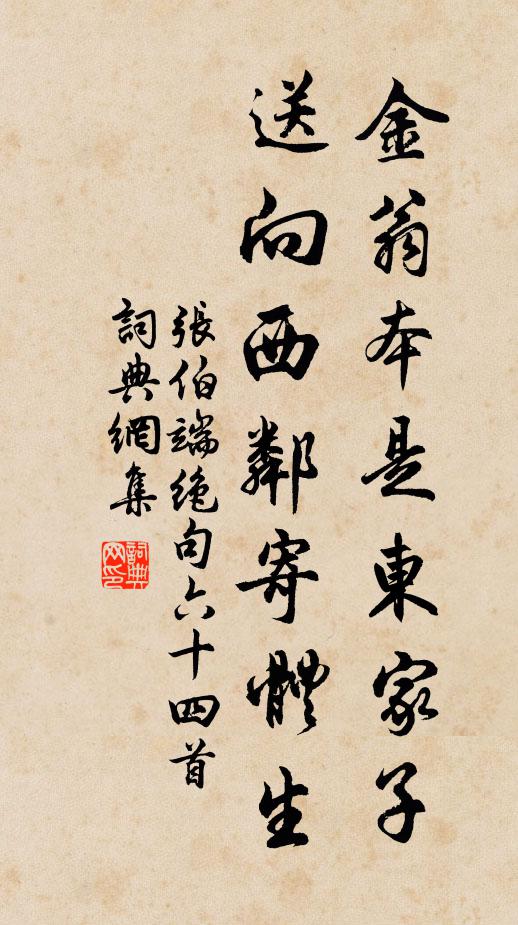 金翁本是東家子
送向西鄰寄體生
張伯端绝句六十四首
詞典網集
詞典
网印